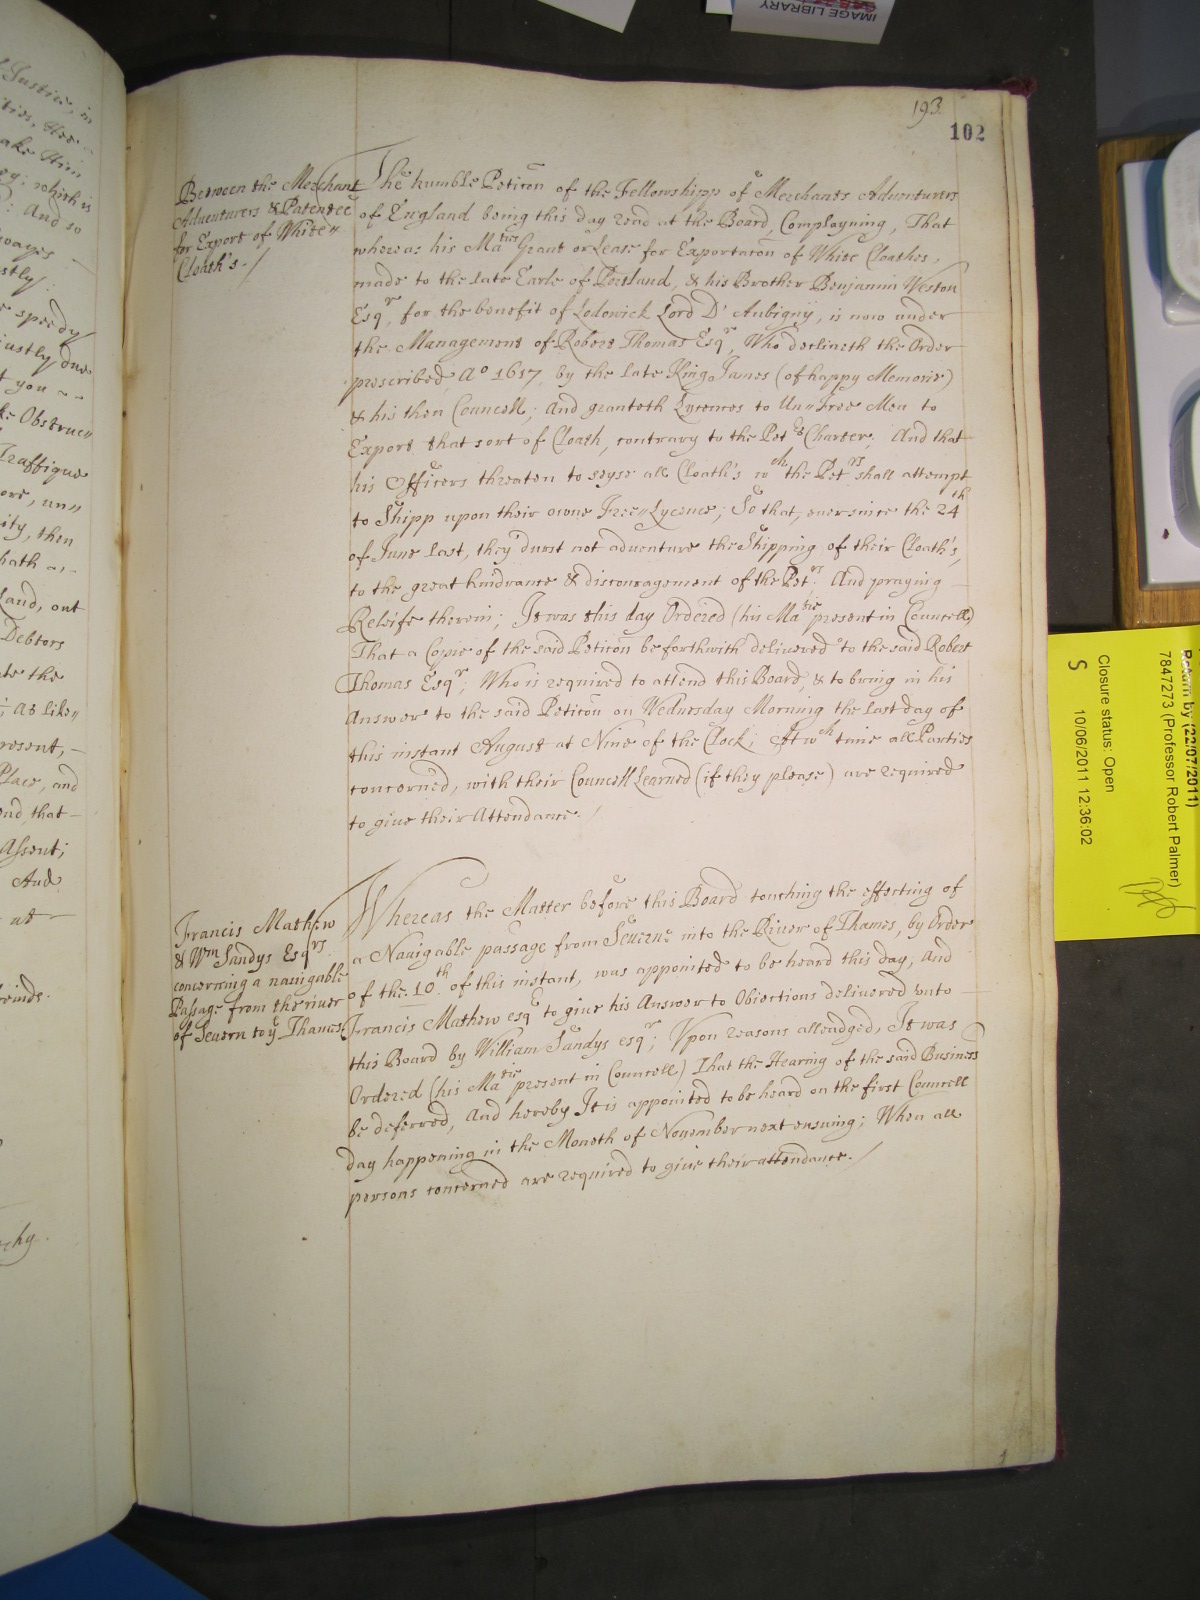 IMAGE LIBRARY
193
102
Between the Merchant
Adventurers & Patentee
for Export of White"
Cloath's./
The humble Peticon of the Fellowshipp of Merchants Adventurers
of England being this day read at the Board, Complayning, That
whereas his Ma:ties Grant or Lease for Exportacon of White Cloathes,
made to the late Earle of Portland, & his Brother Benjamin Weston
Esqr, for the benefit of Lodowick Lord D'Aubigny, is now under
the Management of Robert Thomas Esqr, Who declineth the Order
prescribed Ao 1617 by the late King James (of happy Memorie)
& his then Councell; And granteth Lycences to Un"Free Men to
Export that sort of Cloath, contrary to the Petrs Charter; And that
his Officers threaten to seyse all Cloath's wch the Petrs shall attempt
to Shipp upon their owne Free"Lycence; So that, ever since the 24th
of June last, they durst not adventure the Shipping of their Cloath's,
to the great hindrance & discouragement of the Petrs. And praying
Releife therein; It was this day Ordered (his Ma:tie present in Councell)
That a Copie of the said Peticon be forthwith delivered to the said Robert
Thomas Esqr; Who is required to attend this Board, & to bring in his
Answer to the said Peticon on Wednesday Morning the last day of
this instant August at Nine of the Clock; At wch time all Parties
concerned, with their Councell Learned (if they please) are required
to give their Attendance./
Francis Mathew
& Wm Sandys Esqrs.
concerning a navigable
Passage from the river
of Severn to ye Thames
Whereas the Matter before this Board touching the effecting of
a Navigable passage from Severne into the River of Thames, by Order
of the 10th of this instant, was appointed to be heard this day, And
Francis Mathew esqr to give his Answer to Obiections delivered vnto
this Board by William Sandys esqr; Vpon reasons alleadged, It was
Ordered (his Ma:tie present in Councell) That the Hearing of the said Business
be deferred, And hereby It is appointed to be heard on the first Councell
day happening in the Moneth of November next ensuing; When all
persons concerned are required to give their attendance./
Return by (22/07/2011)
7847273 (Professor Robert Palmer)
Closure status: Open
S 10/06/2011 12:36:02